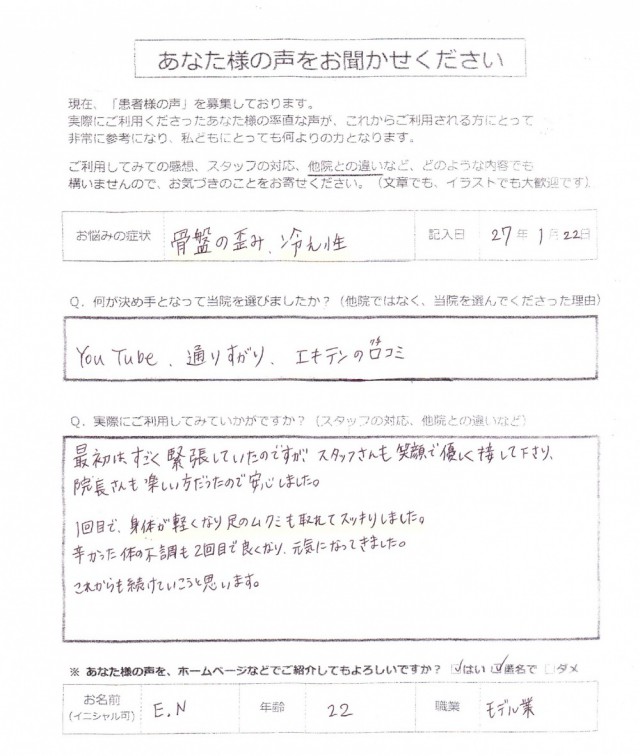 あなた様の声をお聞かせください
現在、「患者様の声」を募集しております。
実際にご利用くださったあなた様の率直な声が、これからご利用される方にとって
非常に参考になり、私どもにとっても何よりの力となります。
ご利用してみての感想、スタッフの対応、他院との違いなど、どのような内容でも
構いませんので、お気づきのことをお寄せください。（文章でも、イラストでも大歓迎です）
お悩みの症状 骨盤の歪み、冷え性 記入日 27年1月22日
Q．何が決め手となって当院を選びましたか？（他院ではなく、当院を選んでくださった理由）
YouTube、通りすがり、エキテンの口コミ
Q．実際にご利用してみていかがですか？（スタッフの対応、他院との違いなど）
最初はすごく緊張していたのですがスタッフさんも笑顔で優しく接して下さり、
院長さんも楽しい方だったので安心しました。
1回目で、身体が軽くなり足のムクミも取れてスッキリしました。
辛かった体の不調も2回目で良くなり、元気になってきました。
これからも続けていこうと思います。
※ あなた様の声を、ホームページなどでご紹介してもよろしいですか？ ☑はい ☑匿名で □ダメ
お名前 E.N 年齢 22 職業 モデル業
(イニシャル可)